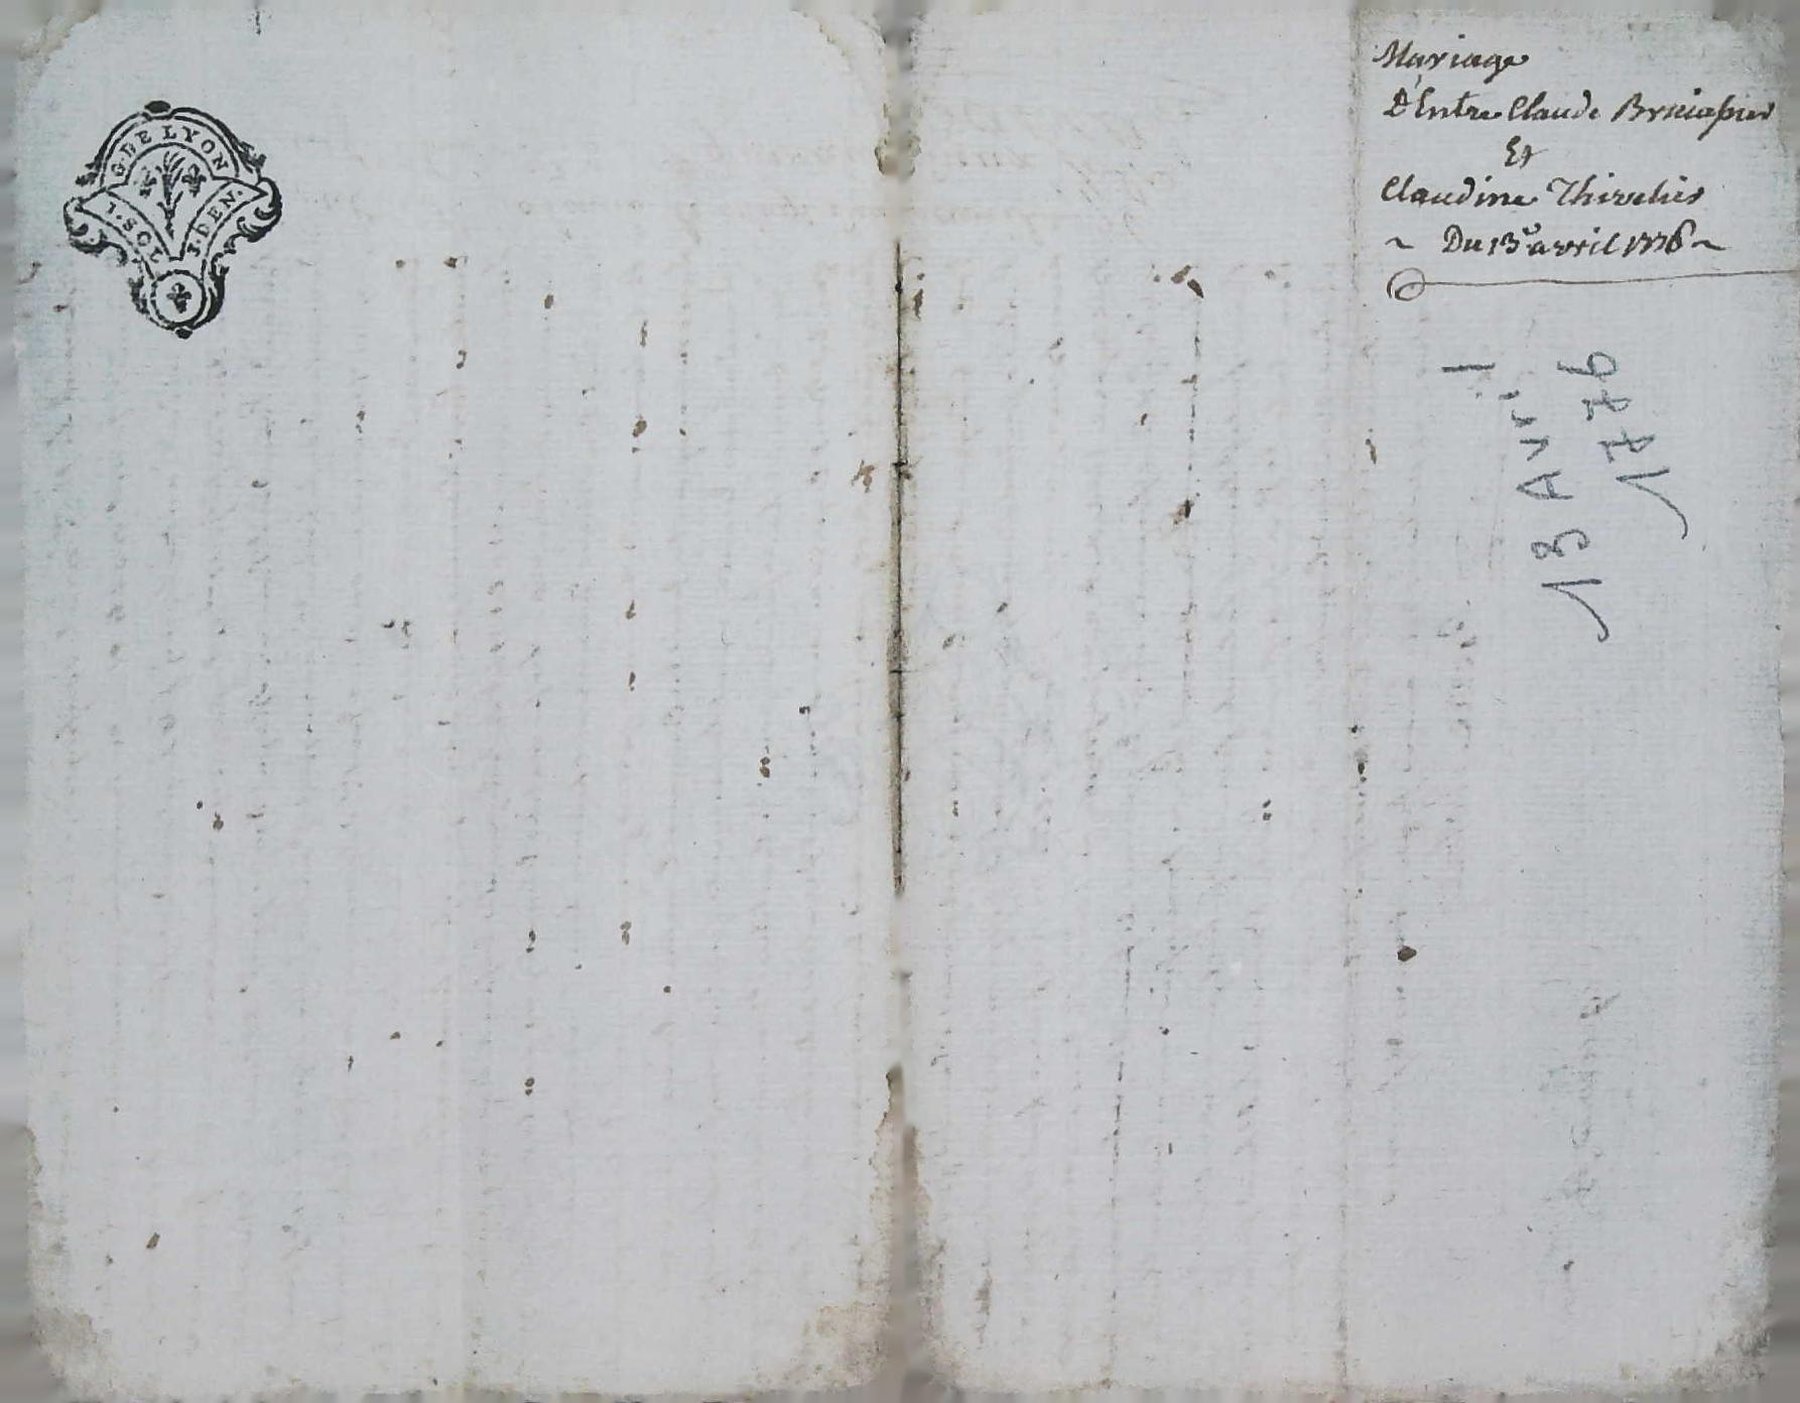 G. DE LYON
1. SOL 1. DEN.
Mariage
D'Entre Claude
Et
Claudine
~ Du 13e avril 1776 ~
13 Avril
1776